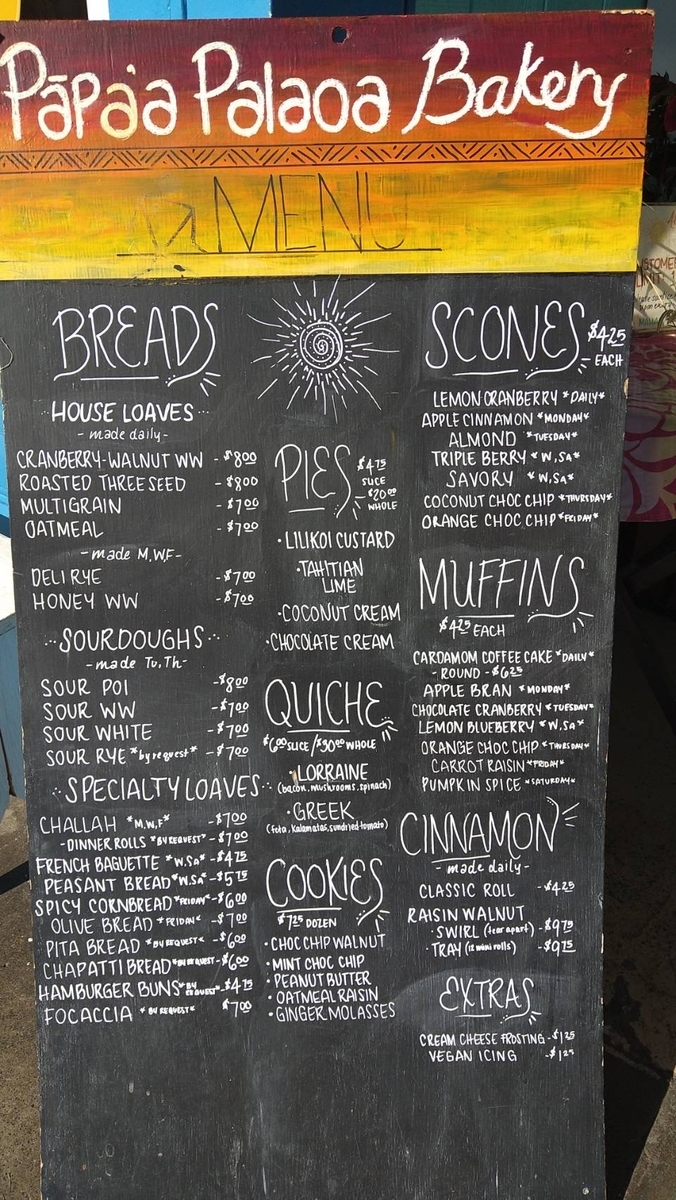 Pāpa'a Palaoa Bakery
MENU
BREADS
·HOUSE LOAVES·
-made daily-
CRANBERRY-WALNUT WW -$8.00
ROASTED THREE SEED -$8.00
MULTIGRAIN -$7.00
OATMEAL -$7.00
-made M,W,F-
DELI RYE -$7.00
HONEY WW -$7.00
··SOURDOUGHS··
-made Tu,Th-
SOUR POI -$8.00
SOUR WW -$7.00
SOUR WHITE -$7.00
SOUR RYE *by request* -$7.00
··SPECIALTY LOAVES··
CHALLAH *M,W,F* -$7.00
-DINNER ROLLS *BY REQUEST* -$7.00
FRENCH BAGUETTE *W,SA* -$4.75
PEASANT BREAD *W,SA* -$5.75
SPICY CORNBREAD *FRIDAY* -$6.00
OLIVE BREAD *FRIDAY* -$7.00
PITA BREAD *BY REQUEST* -$6.00
CHAPATTI BREAD *BY REQUEST* -$6.00
HAMBURGER BUNS *BY REQUEST* -$4.75
FOCACCIA *BY REQUEST* $7.00
PIES
$4.75
SLICE
-$20.00
WHOLE
·LILIKOI CUSTARD
·TAHITIAN
LIME
·COCONUT CREAM
·CHOCOLATE CREAM
QUICHE
$6.00 SLICE/$30.00 WHOLE
·LORRAINE
(bacon, mushrooms, spinach)
·GREEK
(feta, kalamatas, sundried tomato)
COOKIES
$7.25 DOZEN
·CHOC CHIP WALNUT
·MINT CHOC CHIP
·PEANUT BUTTER
·OATMEAL RAISIN
·GINGER MOLASSES
SCONES
$4.25
EACH
LEMON CRANBERRY *DAILY*
APPLE CINNAMON *MONDAY*
ALMOND *TUESDAY*
TRIPLE BERRY *W,SA*
SAVORY *W,SA*
COCONUT CHOC CHIP *THURSDAY*
ORANGE CHOC CHIP *FRIDAY*
MUFFINS
$4.25 EACH
CARDAMOM COFFEE CAKE *DAILY*
-ROUND -$6.25
APPLE BRAN *MONDAY*
CHOCOLATE CRANBERRY *TUESDAY*
LEMON BLUEBERRY *W,SA*
ORANGE CHOC CHIP *THURSDAY*
CARROT RAISIN *FRIDAY*
PUMPKIN SPICE *SATURDAY*
CINNAMON
-made daily-
CLASSIC ROLL -$4.25
RAISIN WALNUT
·SWIRL (tear apart) -$9.75
·TRAY (12 mini rolls) -$9.75
EXTRAS
CREAM CHEESE FROSTING -$1.25
VEGAN ICING -$1.25